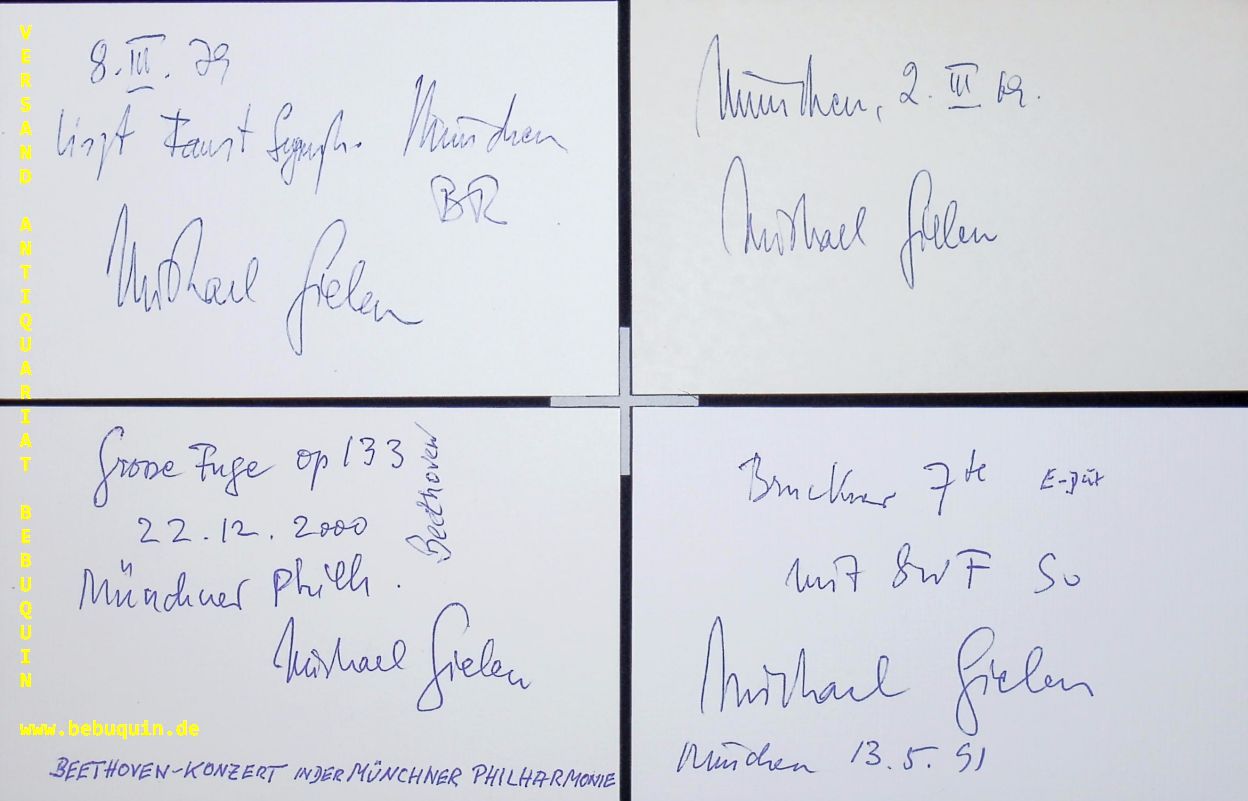 VERSAND ANTIQUARIAT BEBUQUIN
8.III.79
Liszt Faust Symph. München
BR
Michael Gielen
München, 2.III 69.
Michael Gielen
Grosse Fuge op 133
Beethoven
22.12.2000
Münchner Philh.
Michael Gielen
www.bebuquin.de
BEETHOVEN-KONZERT IN DER MÜNCHNER PHILHARMONIE
Bruckner 7te E-Dur
mit SWF SO
Michael Gielen
München 13.5.91